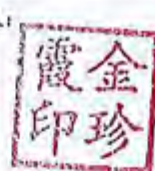 金珍
霞印